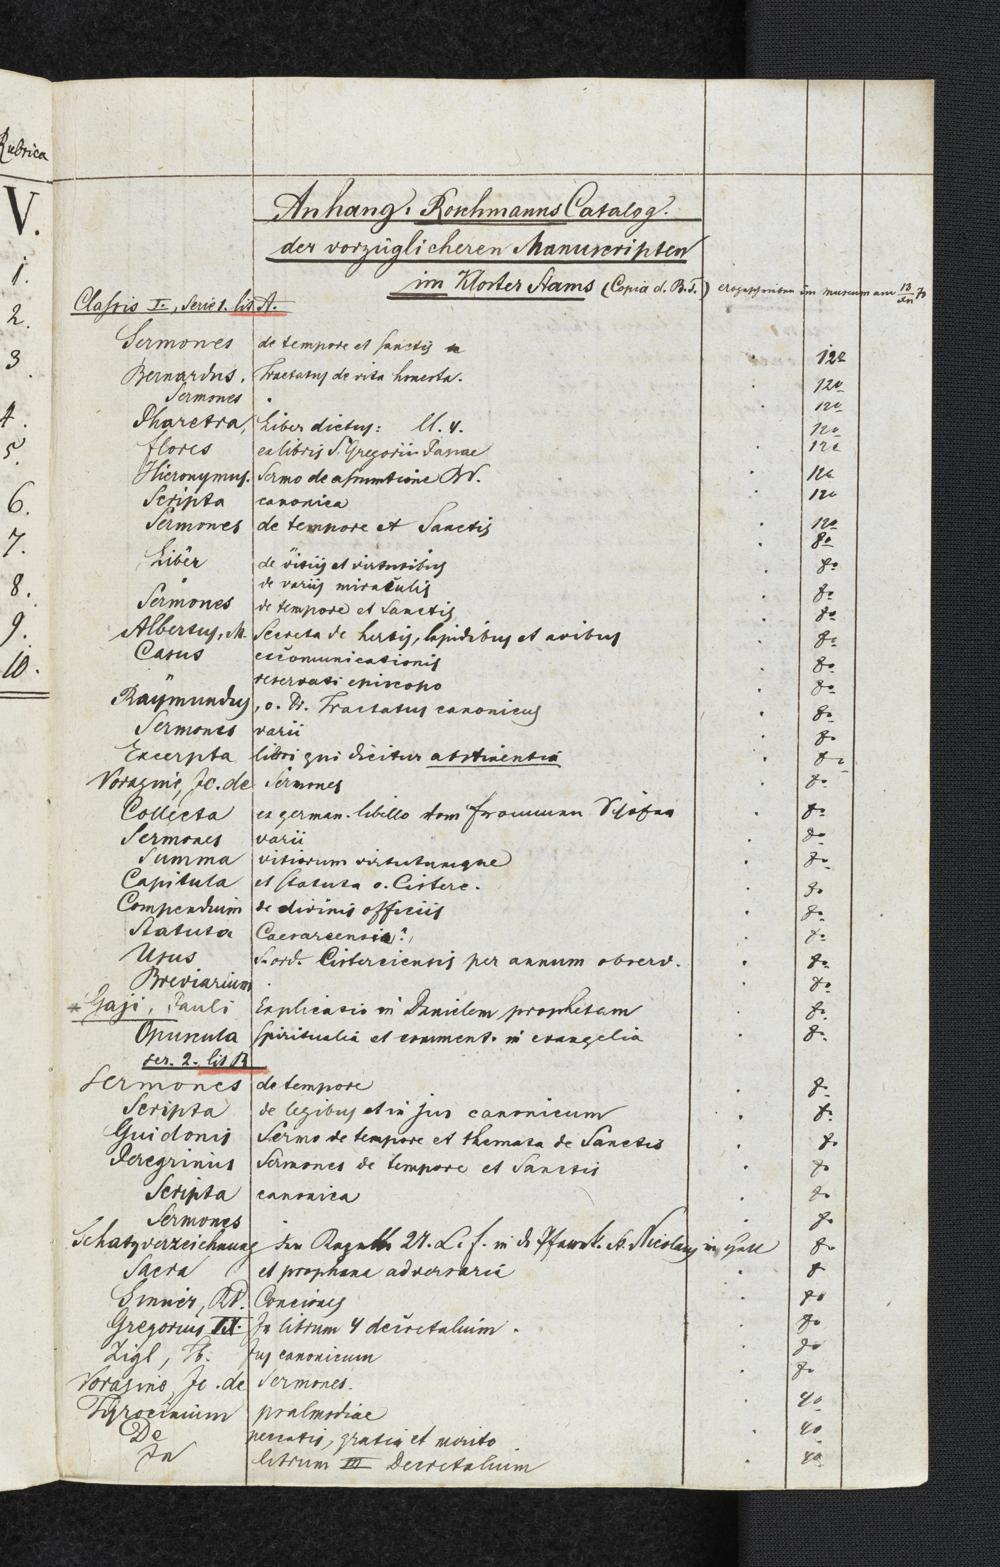 Rubrica
V.
1.
2.
3.
4.
5.
6.
7.
8.
9.
10.
Anhang. Roschmanns Catalog.
der vorzüglicheren Manuscripten
im Kloster Stams (Copia d. B.T.) im museum am
Classis I., Serie 1. lit A.
Sermones de tempore et sanctis 12o
Bernardus, Tractatus de vita honesta. 12o
Sermones 12o
Pharetra, Liber dictus: ll. 4. 12o
flores ex libris S. Gregorii Papae 12o
Hieronymus. Sermo de assumtione BV. 12o
Scripta canonica 12o
Sermones de tempore et Sanctis 12o
8o
Liber de vitiis et virtutibus 8o
" de variis miraculis
Sermones de tempore et Sanctis 8o
8o
Albertus, M. Secreta de herbis, lapidibus et avibus 8o
Casus excomunicationis 8o
" reservati episcopo 8o
Raÿmundus, o. Pr. Tractatus canonicus 8o
Sermones varii 8o
Excerpta libri qui dicitur abstinentia 8o
Voragine, Jc. de Sermones 8o
Collecta ex german. libello 8o
Sermones varii 8o
Summa vitiorum virtutumque 8o
Capitula et statuta o. Cisterc. 8o
Compendium de divinis officiis 8o
Statuta Caesarcensia?, 8o
Usus s. ord. Cisterciensis per annum observ. 8o
Breviarium 8o
* Gaji, Pauli Explicatio in Danielem prophetam 8o
Opuscula spiritualia et comment. in evangelia 8o
ser. 2. lit B
Sermones de tempore 8o
Scripta de legibus et in jus canonicum 8o
Guidonis Sermo de tempore et themata de Sanctis 8o
Peregrinus Sermones de tempore et Sanctis 8o
Scripta canonica 8o
Sermones 8o
Schatzverzeichnung 27. L. f. in d. Pfarrk. St. Nicolaus in Hall 8o
Sacra et prophana adversaria 8
Conciones 8o
Gregorius IX. In librum 4 decretalium. 8o
Zigl, Jus canonicum 8o
Voragine, Jc. de Sermones. 8o
Tyrocinium psalmodiae 4o
De peccatis, gratia et merito 4o
In librum III Decretalium 4o